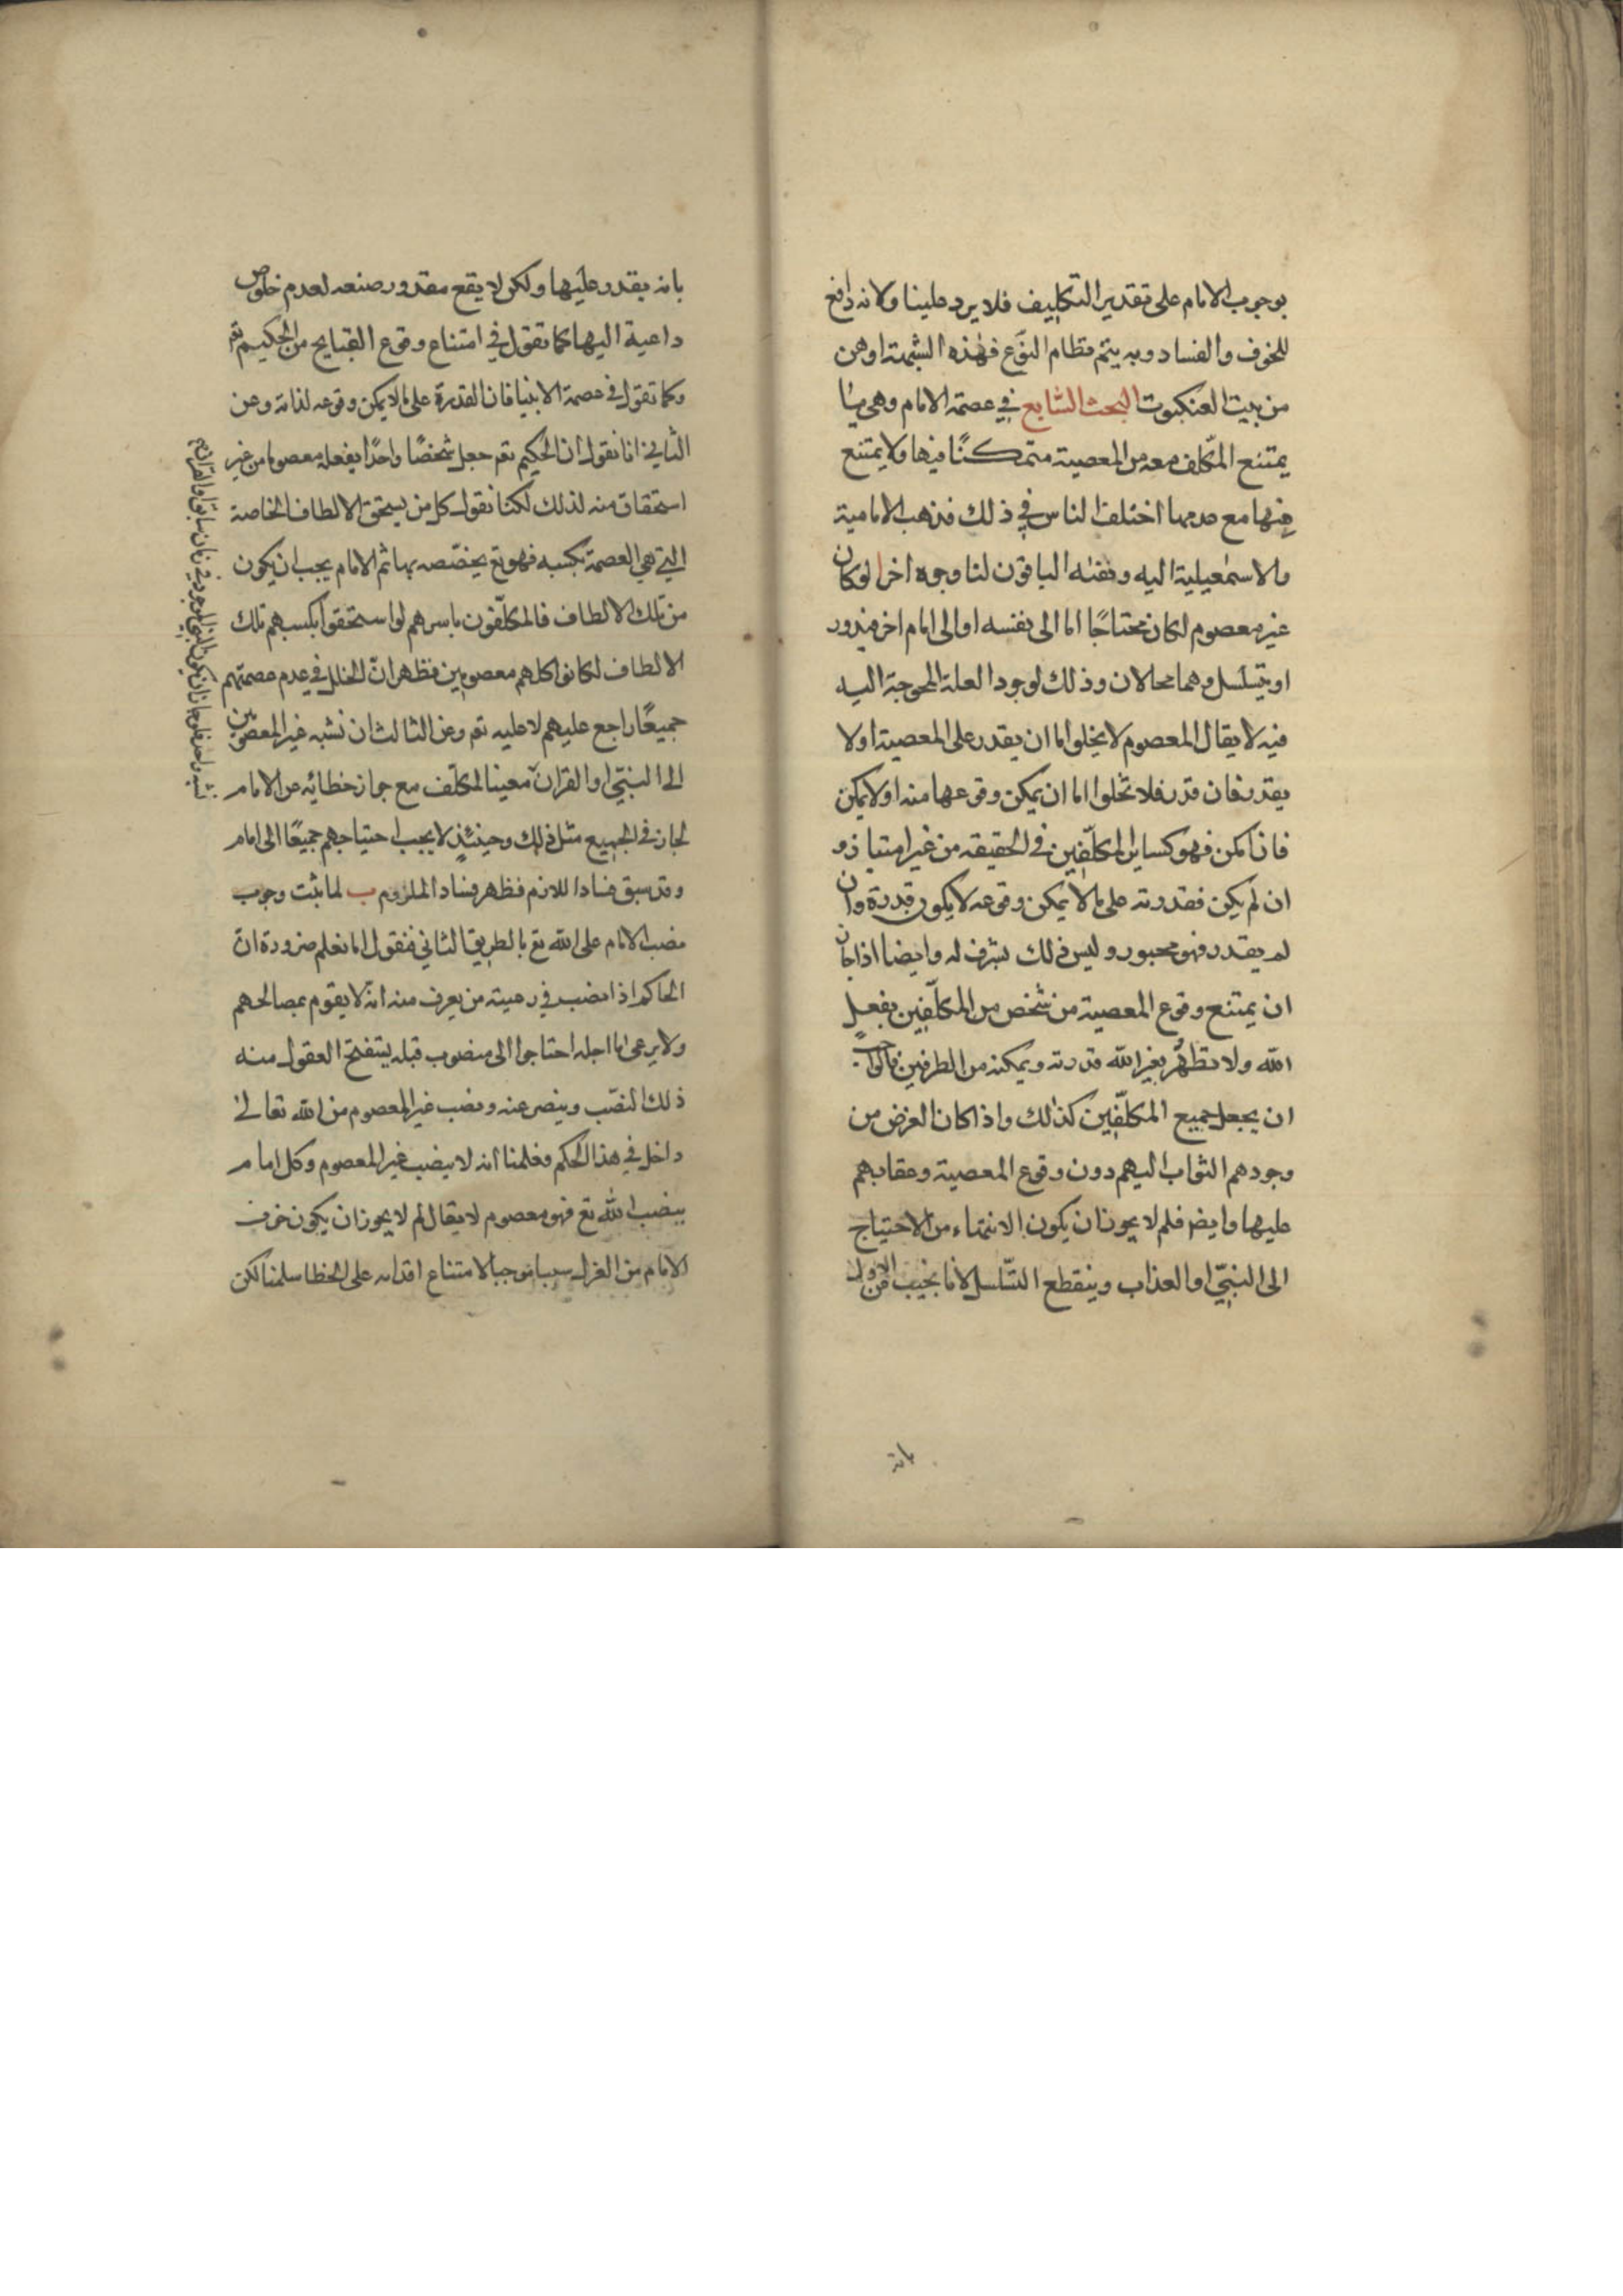 بوجوب الامام على تقدير التكليف فلا يرد علينا ولانه دافع
للخوف والفساد وبه يتم نظام النوع فهذه الشبهة اوهن
من بيت العنكبوت البحث السابع في عصمة الامام وهي ما
يمتنع المكلف معه من المعصية متمكنًا فيها ولا يمتنع
منها مع عدمها اختلف الناس في ذلك فذهب الامامية
والاسمعيلية اليه ونفاه الباقون لنا وجوه اخر ا لو كان
غير معصوم لكان محتاجًا اما الى نفسه او الى امام اخر فيدور
او يتسلسل وهما محالان وذلك لوجود العلة المحوجة اليه
فيه لا يقال المعصوم لا يخلوا اما ان يقدر على المعصية اولا
يقدر فان قدر فلا تخلوا اما ان يمكن وقوعها منه او لا يمكن
فان امكن فهو كساير المكلّفين في الحقيقه من غير امتياز و
ان لم يكن فقدرته على ما لا يمكن وقوعه لا يكون قدرة وان
لم يقدر فهو مجبور وليس ذلك بشرف له وايضا اذا جاز
ان يمتنع وقوع المعصية من شخص من المكلّفين بفعل
الله ولا بغير الله قدرته ويمكنه من الطرفين
ان يجعل جميع المكلّفين كذلك واذا كان الغرض من
وجودهم الثواب اليهم دون وقوع المعصية وعقابهم
عليها وايض فلم لا يجوز ان يكون الانتهاء من الاحتياج
الى النبيّ او العذاب وينقطع التسّلسل لانا نجيب عن الاول
بانه
بانه يقدر عليها ولكن لا يقع مقدور صنعه لعدم خلوص
داعية اليها كما تقول في امتناع وقوع القبايح من الحكيم تع
وكما تقول في عصمة الانبيا فان القدرة على ما لا يمكن وقوعه لذاته وعن
الثاني انا نقول ان الحكيم تع جعل شخصًا واحدًا بفعله معصوما من غير
استحقاق منه لذلك لكنا نقول كل من يستحق الالطاف الخاصة
التي هي العصمة بكسبه فهو تع يخصّصه بها ثم الامام يجب ان يكون
من تلك الالطاف فالمكلّفون باسرهم لو استحقوا بكسبهم تلك
الالطاف لكانوا كلهم معصومين فظهر انّ الخلل في عدم عصمتهم
جميعًا راجع عليهم لا عليه تع وعن الثالث ان نسبه غير المعصومين
الى النبيّ او القران معينا لمكلّف مع جواز خطائه عن الامام
لجاز في الجميع مثل ذلك وحينئذٍ لا يجب احتياجهم جميعًا الى امام
وقد سبق فساد اللازم فظهر فساد الملزوم ب لما ثبت وجوب
نصب الامام على الله تع بالطريق الثاني فنقول انا نعلم ضرورة ان
الحاكم اذا نصب في رعيته من يعرف منه انّه لا يقوم بمصالحهم
ولا يرعى ما اجله احتاجوا الى منصوب قبله يستقبح العقول منه
ذلك النصّب وينصر عنه ونصب غير المعصوم من الله تعالى
داخل في هذا الحكم فعلمنا انه لا ينصب غير المعصوم وكل امام
ينصب الله تع فهو معصوم لا يقال لم لا يجوز ان يكون خوف
الامام من العزل سببا موجبا لامتناع اقدامه على الخطا سلمنا لكن